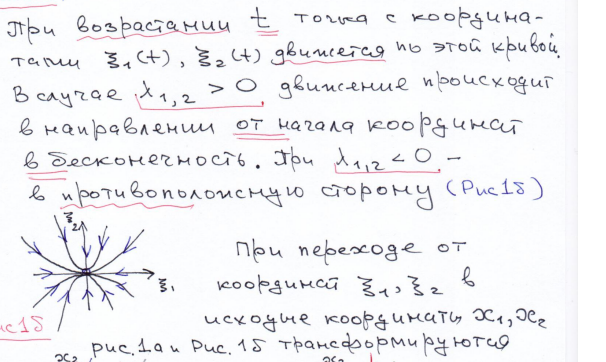 При возрастании t точка с координа-
тами ξ₁(t), ξ₂(t) движется по этой кривой.
В случае λ₁,₂ > 0 движение происходит
в направлении от начала координат
в бесконечность. При λ₁,₂ < 0 –
в противоположную сторону (Рис1б)
ξ₂
ξ₁
При переходе от
координат ξ₁, ξ₂ в
исходные координаты x₁, x₂
рис. 1а и Рис. 1б трансформируются